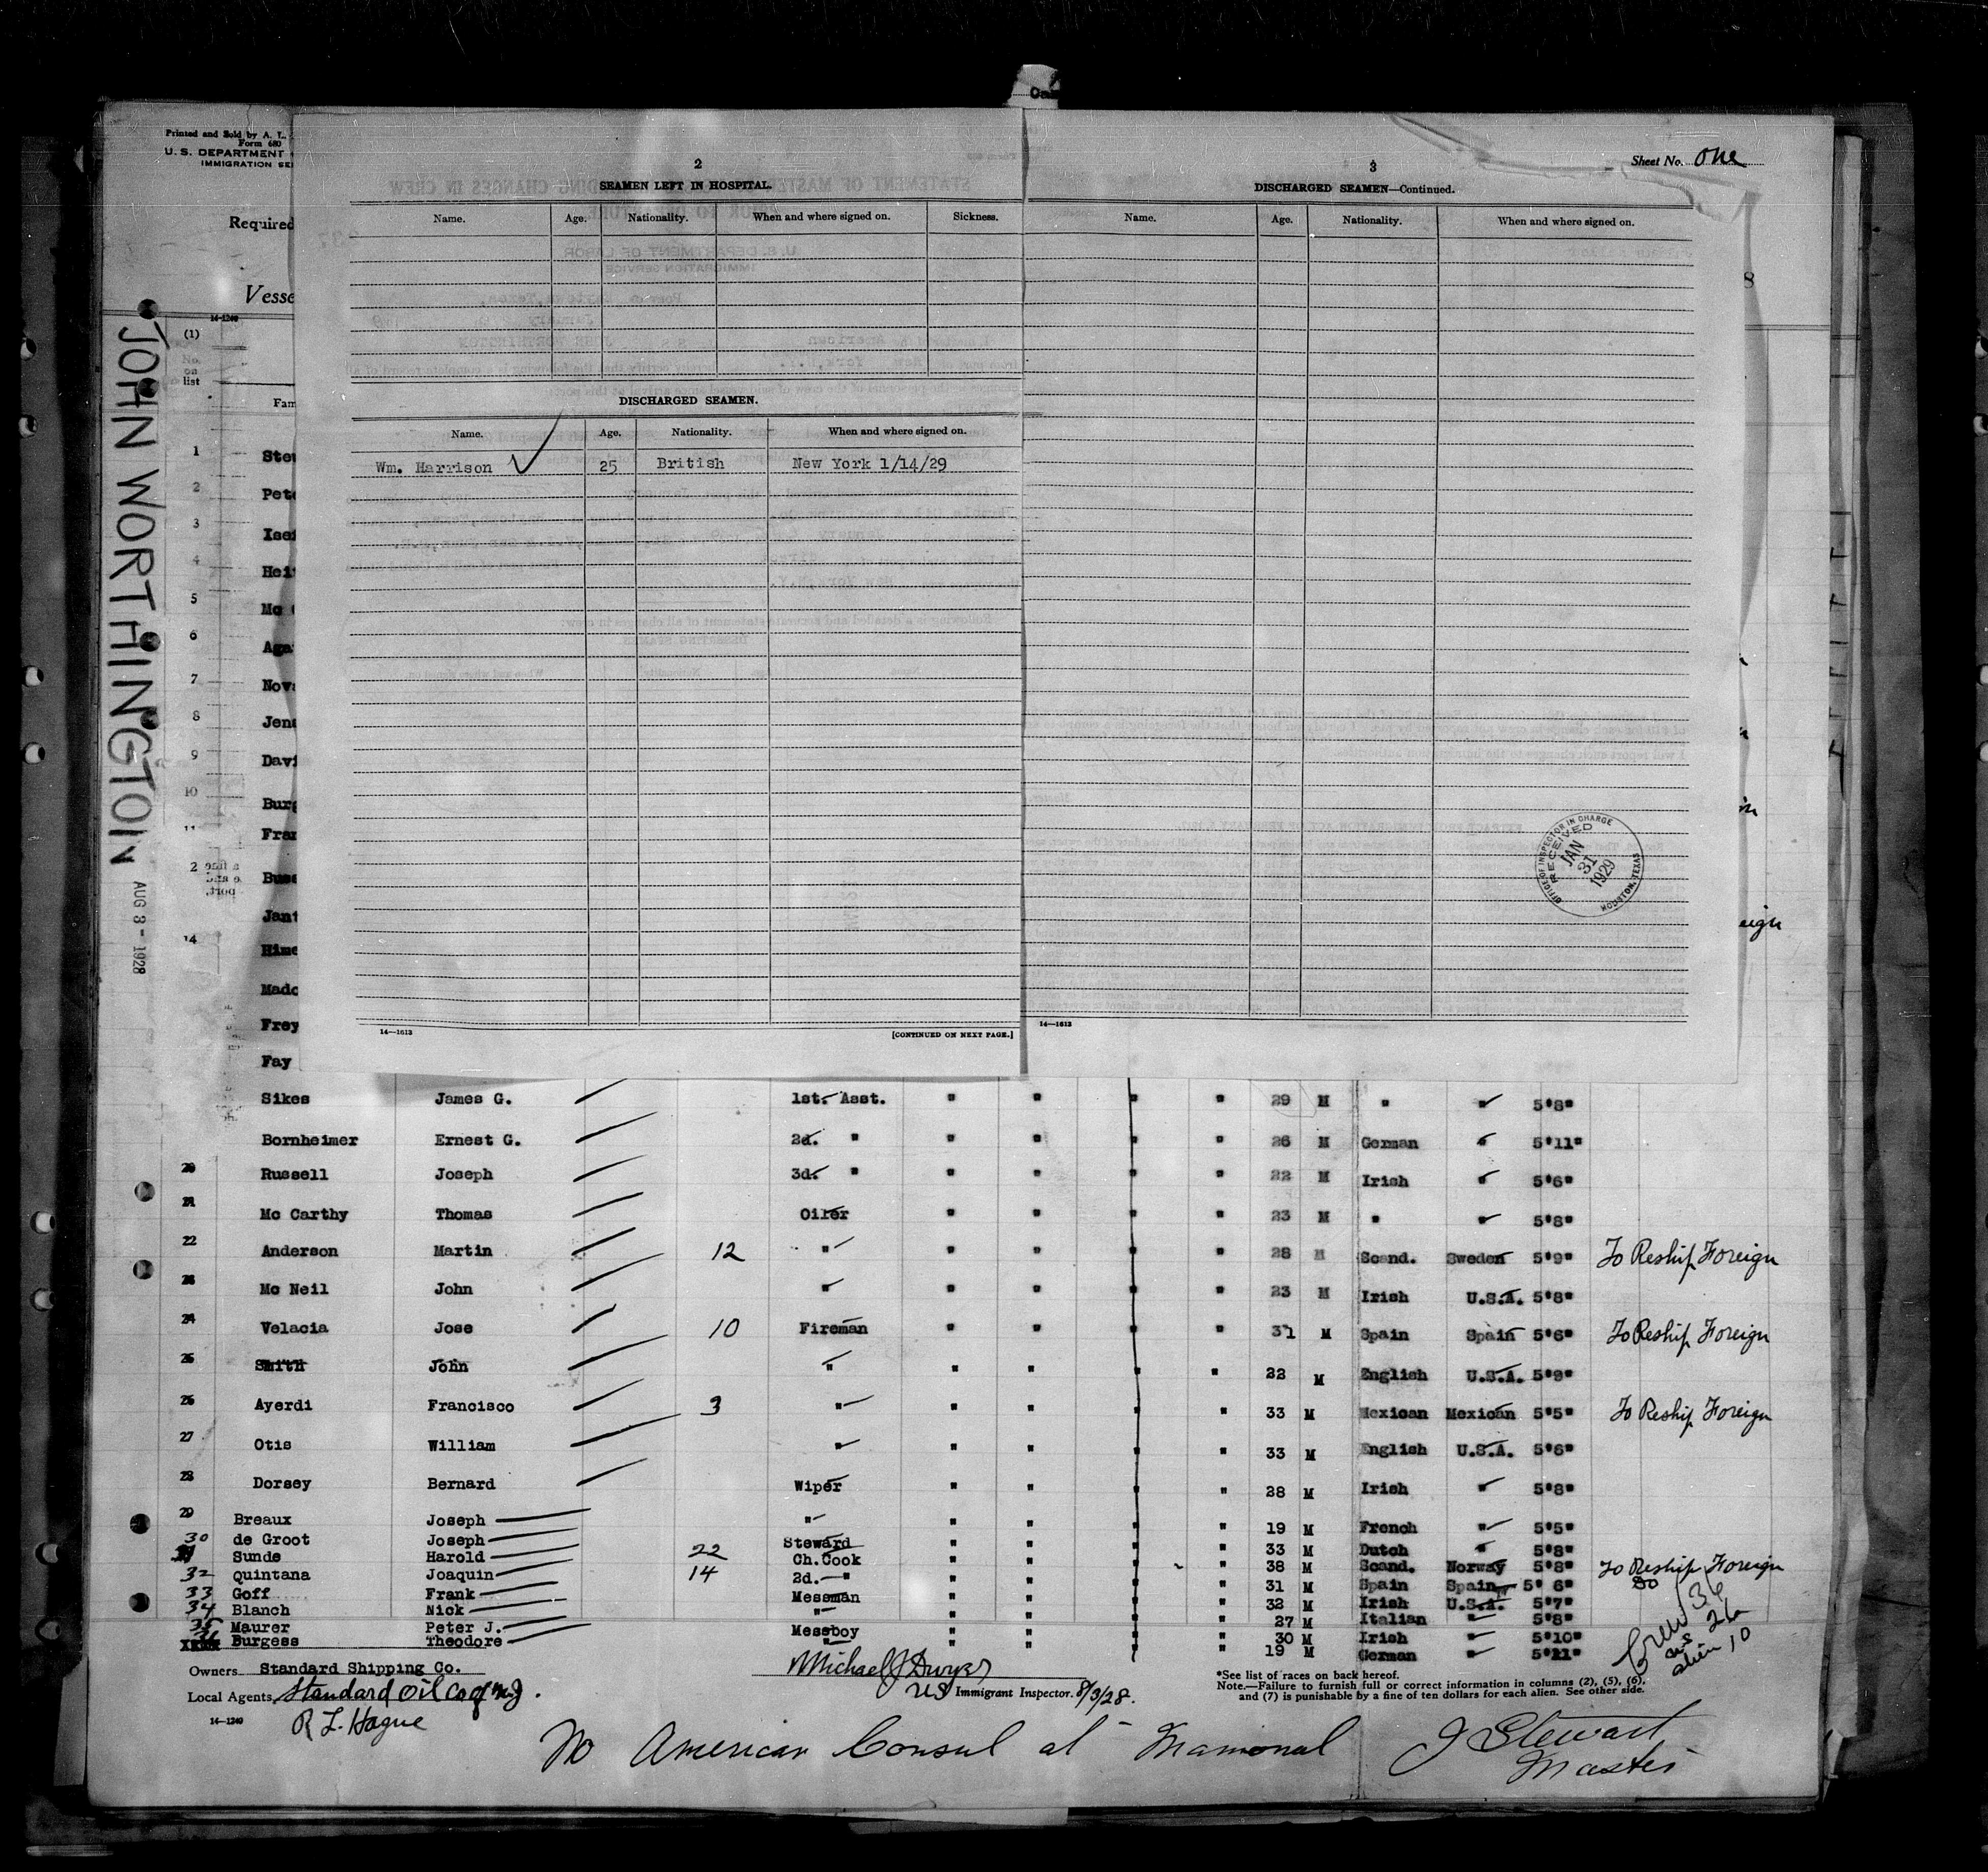 Printed and Sold by A. L.
Form 680
U. S. DEPARTMENT
IMMIGRATION SE
Required
Vesse
14-1240
(1)
No. on list
Fam
JOHN WORTHINGTON
AUG 8 - 1928
Sheet No. one
2
SEAMEN LEFT IN HOSPITAL.
Name. Age. Nationality. When and where signed on. Sickness.
DISCHARGED SEAMEN.
Name. Age. Nationality. When and where signed on.
Wm. Harrison 25 British New York 1/14/29
14—1613
[CONTINUED ON NEXT PAGE.]
3
DISCHARGED SEAMEN—Continued.
Name. Age. Nationality. When and where signed on.
OFFICE OF INSPECTOR IN CHARGE
RECEIVED
JAN 31 1929
HOUSTON, TEXAS
14—1613
8
1 Stew
2 Pete
3
4
5 Mc
6 Aga
7 Nov
8 Jen
9 Davi
10 Burg
11 Fran
2
Jant
14
Mado
Frey
Fay
eign
Sikes James G. 1st. Asst. " " " " 29 M " " 5'8"
Bornheimer Ernest G. 2d. " " " " " 26 M German " 5'11"
20 Russell Joseph 3d. " " " " " 22 M Irish " 5'6"
21 Mc Carthy Thomas Oiler " " " " 23 M " " 5'8"
22 Anderson Martin 12 " " " " " 28 M Scand. Sweden 5'9" To Reship Foreign
23 Mc Neil John " " " " " 23 M Irish U.S.A. 5'8"
24 Velacia Jose 10 Fireman " " " " 31 M Spain Spain 5'6" To Reship Foreign
25 Smith John " " " " " 22 M English U.S.A. 5'9"
26 Ayerdi Francisco 3 " " " " " 33 M Mexican Mexican 5'5" To Reship Foreign
27 Otis William " " " " " 33 M English U.S.A. 5'6"
28 Dorsey Bernard Wiper " " " " 28 M Irish " 5'8"
29 Breaux Joseph " " " " " 19 M French " 5'5"
30 de Groot Joseph Steward " " " " 33 M Dutch " 5'8"
31 Sunde Harold 22 Ch. Cook " " " " 38 M Scand. Norway 5'8" To Reship Foreign
32 Quintana Joaquin 14 2d. " " " " " 31 M Spain Spain 5' 6" Do
33 Goff Frank Messman " " " " 32 M Irish U.S.A. 5'7"
34 Blanch Nick " " " " " 27 M Italian " 5'8"
35 Maurer Peter J. Messboy " " " " 30 M Irish " 5'10"
36 Burgess Theodore " " " " " 19 M German " 5'11"
Crew 36
aus 26
alien 10
Owners Standard Shipping Co.
Local Agents Standard Oil Co of N.J.
R L. Hague
14—1240
Michael J Dwyer
US Immigrant Inspector. 8/3/28.
*See list of races on back hereof.
Note.—Failure to furnish full or correct information in columns (2), (5), (6), and (7) is punishable by a fine of ten dollars for each alien. See other side.
No American Consul at Mamonal
J Stewart
Master